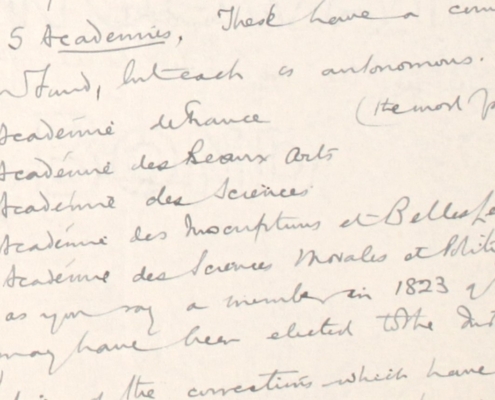 5 Academies, These have a com
Fund, but each is autonomous.
Académie de France (the most
Académie des Beaux Arts
Académie des Sciences
Académie des Inscriptions et Belles Le
Académie des Sciences Morales et Politi
as you say a member in 1823
may have been elected to the Inst
the corrections which have